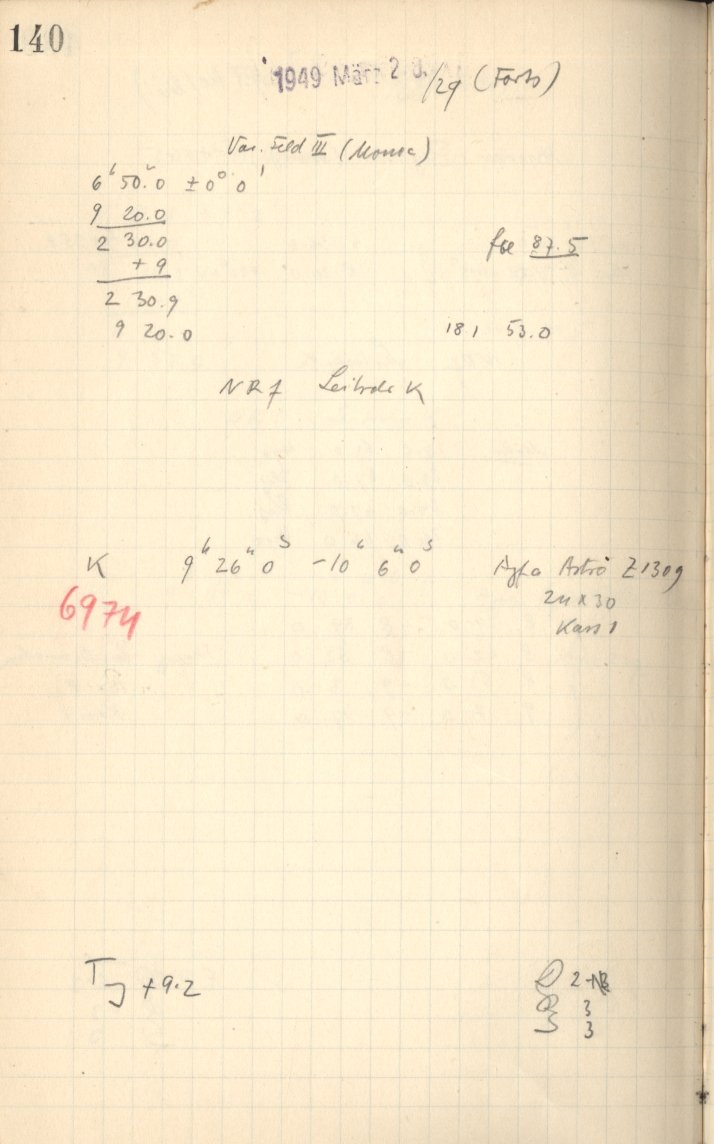 140
1949 März 28./29 (Forts)
Var. Feld III (Monoc)
6ʰ 50.ᵐ0 ±0° 0'
9 20.0
2 30.0
+9
2 30.9
9 20.0
foc 87.5
181 53.0
NR 7 K
K 9ʰ 26ᵐ 0ˢ -10ʰ 6ᵐ 0ˢ Agfa Astro Z1309
6974
24 x 30
Kass 1
T +9.2
2
3
3